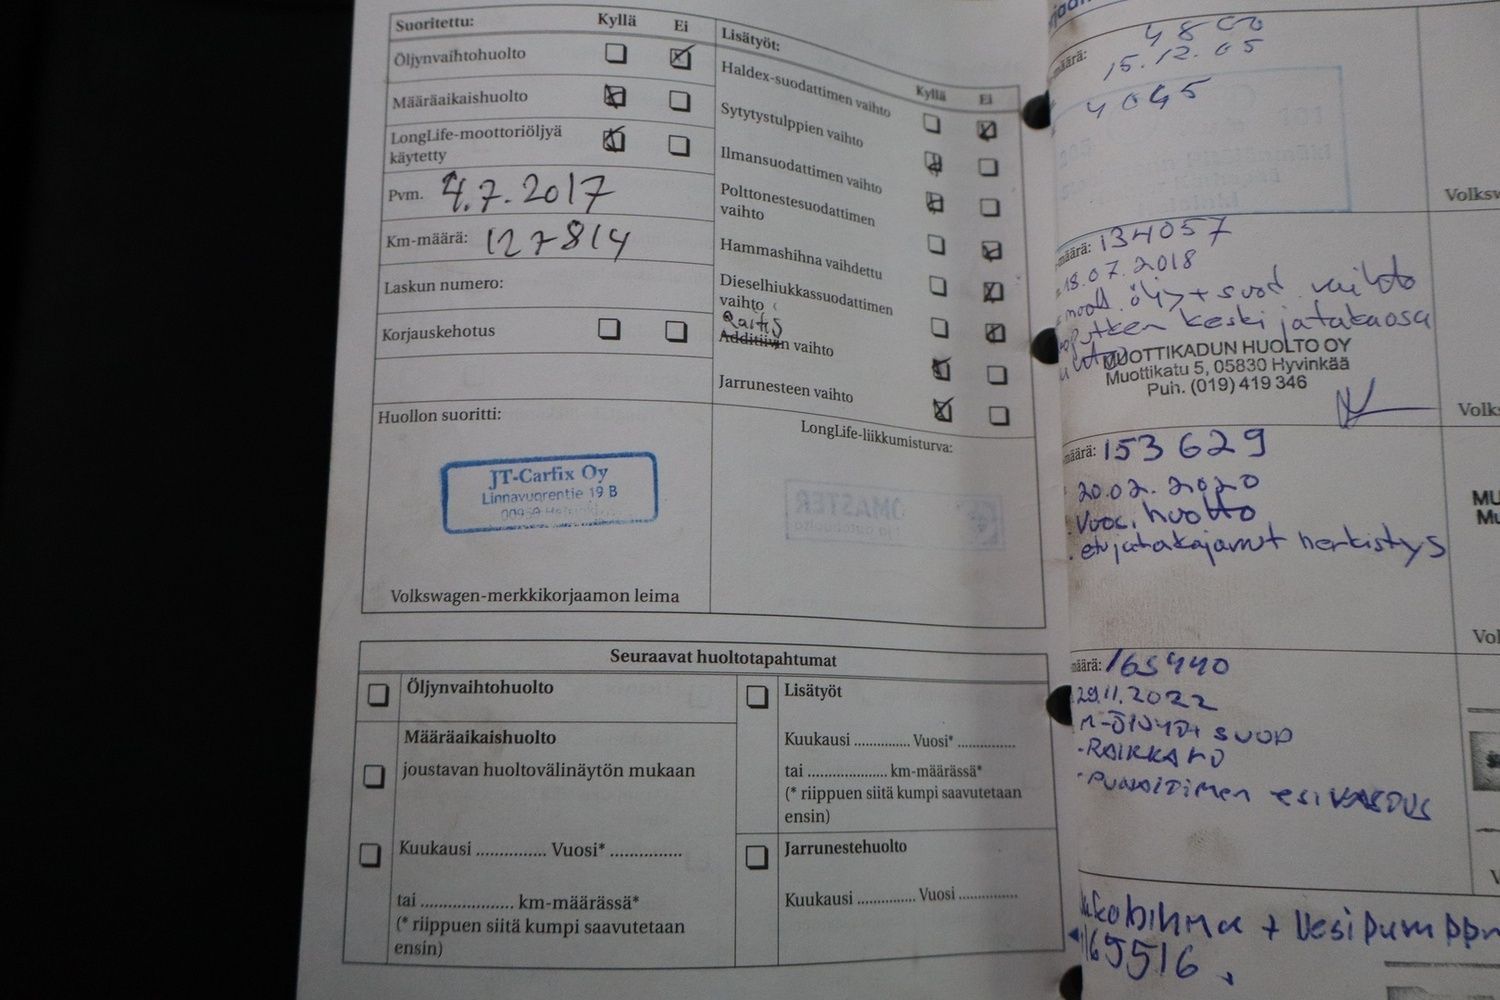 Suoritettu: Kyllä Ei
Öljynvaihtohuolto
Määräaikaishuolto
LongLife-moottoriöljyä
käytetty
Pvm. 4.7.2017
Km-määrä: 127814
Laskun numero:
Korjauskehotus
Huollon suoritti:
JT-Carfix Oy
Linnavuorentie 19 B
Volkswagen-merkkikorjaamon leima
Lisätyöt:
Kyllä Ei
Haldex-suodattimen vaihto
Sytytystulppien vaihto
Ilmansuodattimen vaihto
Polttonestesuodattimen
vaihto
Hammashihna vaihdettu
Dieselhiukkassuodattimen
vaihto
Raitis
Additiivin vaihto
Jarrunesteen vaihto
LongLife-liikkumisturva:
Seuraavat huoltotapahtumat
Öljynvaihtohuolto
Määräaikaishuolto
joustavan huoltovälinäytön mukaan
Kuukausi ............... Vuosi* ...............
tai .................... km-määrässä*
(* riippuen siitä kumpi saavutetaan
ensin)
Lisätyöt
Kuukausi .............. Vuosi* ...............
tai .................... km-määrässä*
(* riippuen siitä kumpi saavutetaan
ensin)
Jarrunestehuolto
Kuukausi .............. Vuosi ...............
4800
määrä: 15.12.05
4045
määrä: 134057
18.07.2018
öljy + suod. vaihto
keski jatakaosa
MUOTTIKADUN HUOLTO OY
Muottikatu 5, 05830 Hyvinkää
Puh. (019) 419 346
määrä: 153629
20.02.2020
Vuos. huolto
etujatakajarrut herkistys
määrä: 165440
29.11.2022
M-ÖLJY+ SUOD
-RAIKKAHD
-PUHALTIMEN esivastus
+ Vesipumppu
165516